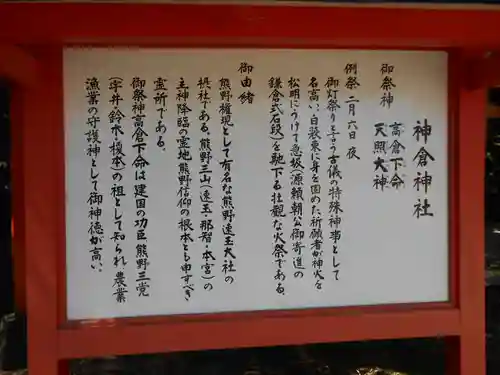 神倉神社
御祭神
高倉下命
天照大神
例祭 二月六日 夜
御灯祭りと言う古儀の特殊神事として
名高い、白装束に身を固めた祈願者が神火を
松明にうけて急坂(源頼朝公御寄進の
鎌倉式石段)を馳下る壮観な火祭である。
御由緒
熊野権現として有名な熊野速玉大社の
摂社である。熊野三山(速玉・那智・本宮)の
主神降臨の霊地熊野信仰の根本とも申すべき
霊所である。
御祭神高倉下命は建国の功臣熊野三党
(宇井・鈴木・榎本)の祖として知られ 農業
漁業の守護神として御神徳が高い、